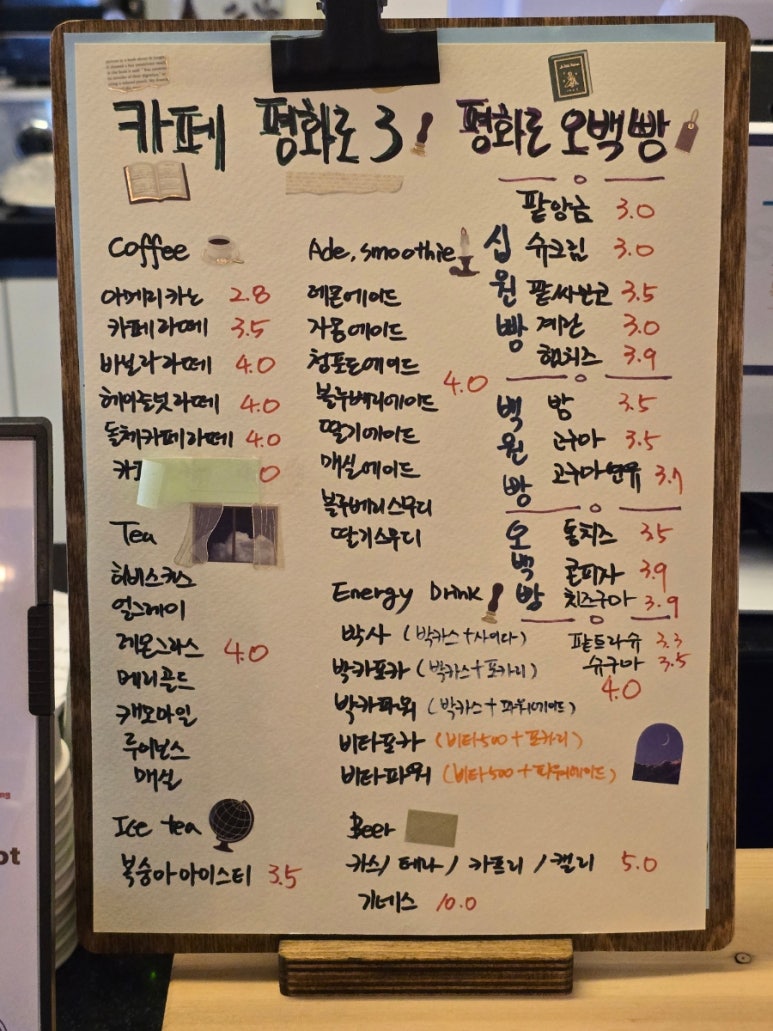 카페 평화로 3
평화로 오백빵
Coffee
아메리카노 2.8
카페라떼 3.5
바닐라라떼 4.0
헤이즐넛라떼 4.0
돌체카페라떼 4.0
Tea
히비스커스
얼그레이
레몬그라스
메리골드
캐모마일
루이보스
매실
4.0
Ice tea
복숭아아이스티 3.5
Ade, smoothie
레몬에이드
자몽에이드
청포도에이드
블루베리에이드
딸기에이드
매실에이드
블루베리스무디
딸기스무디
4.0
Energy Drink
박사 (박카스+사이다)
박카포카 (박카스+포카리)
박카파워 (박카스+파워에이드)
비타포카 (비타500+포카리)
비타파워 (비타500+파워에이드)
4.0
Beer
카스/테라/카프리/켈리 5.0
기네스 10.0
십원빵
팥앙금 3.0
슈크림 3.0
팥싸만코 3.5
계란 3.0
햄치즈 3.9
백원빵
밤 3.5
고구마 3.5
고구마 3.7
오백빵
통치즈 3.5
콘피자 3.9
치즈구마 3.9
팥트라슈 3.3
슈구마 3.5